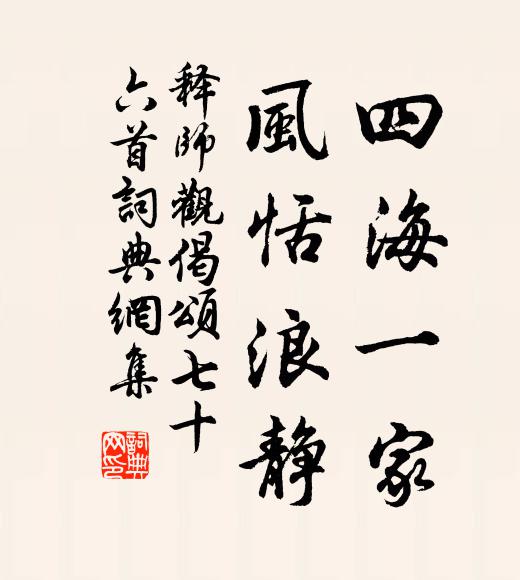 四海一家
風恬浪静
释師觀偈頌七十
六首詞典網集
詞典网印